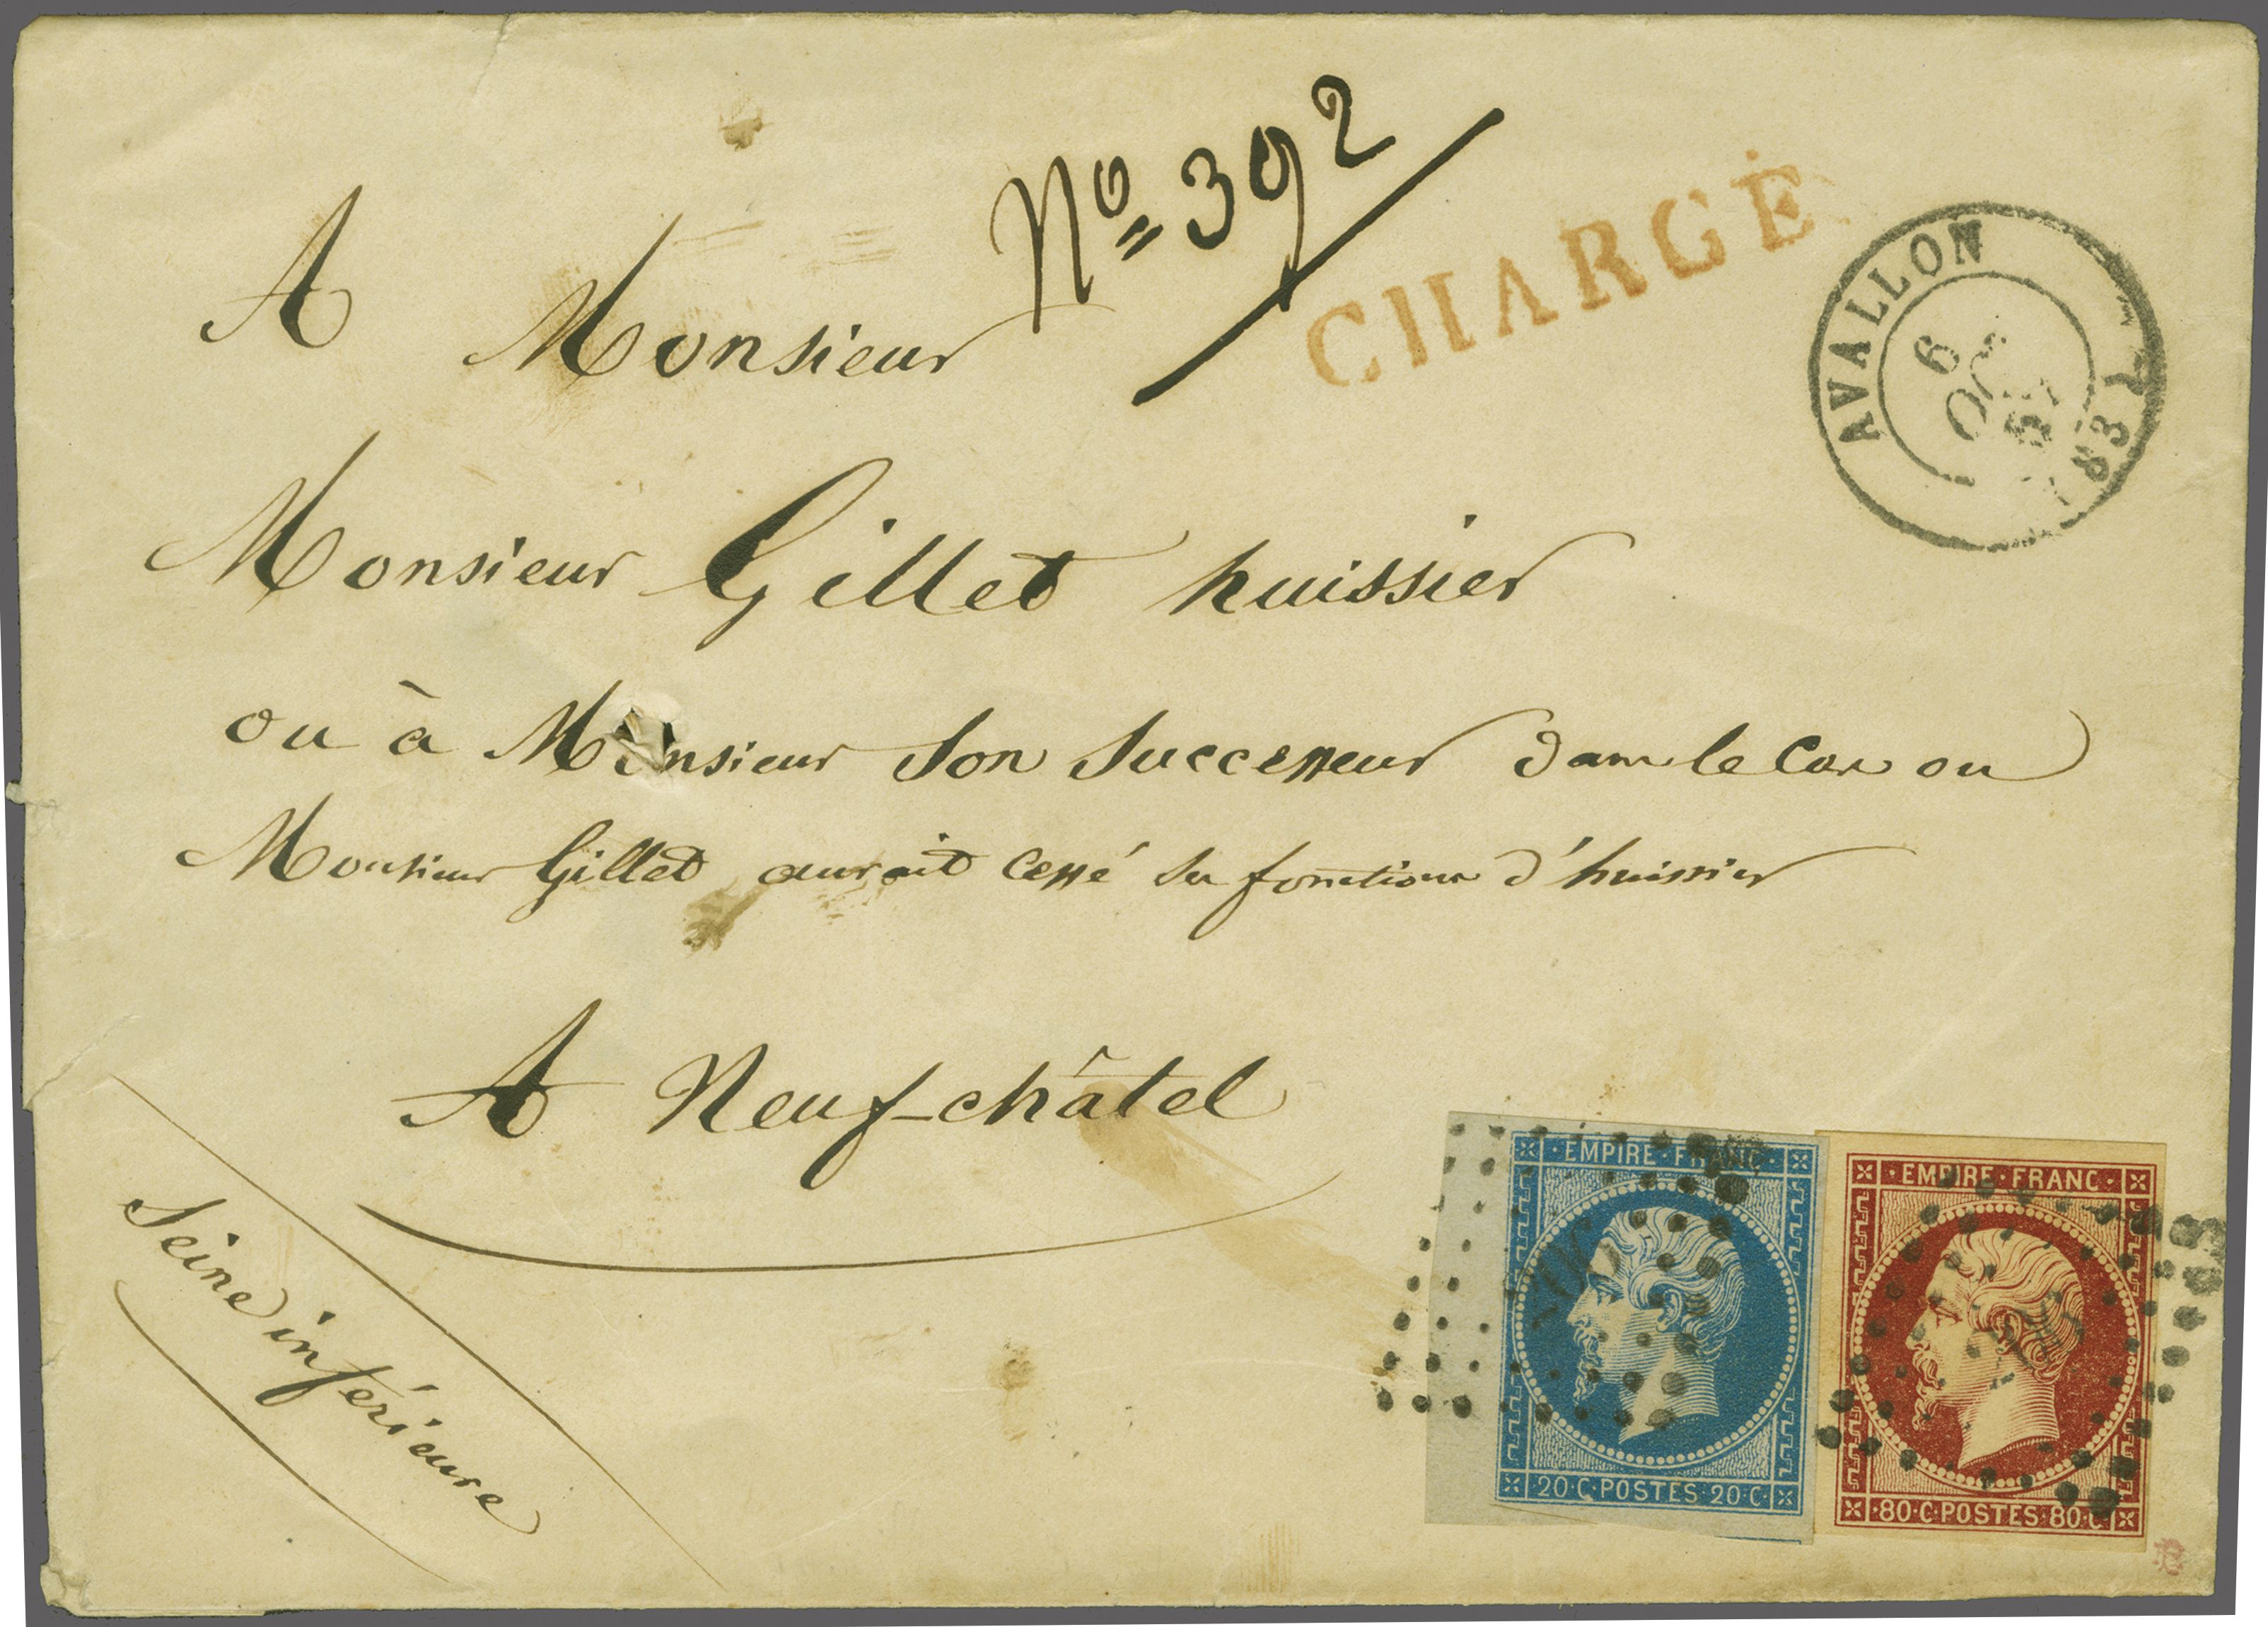 Nº 392
CHARGÉ
AVALLON
6
OCT
57
(83)
A Monsieur
Monsieur Gillet huissier
ou à Monsieur son successeur dans le Cas ou
Monsieur Gillet aurait cessé ses fonctions d'huissier
A Neuf-châtel
Seine inférieure
EMPIRE FRANC
20 C POSTES 20 C
EMPIRE FRANC
80 C POSTES 80 C